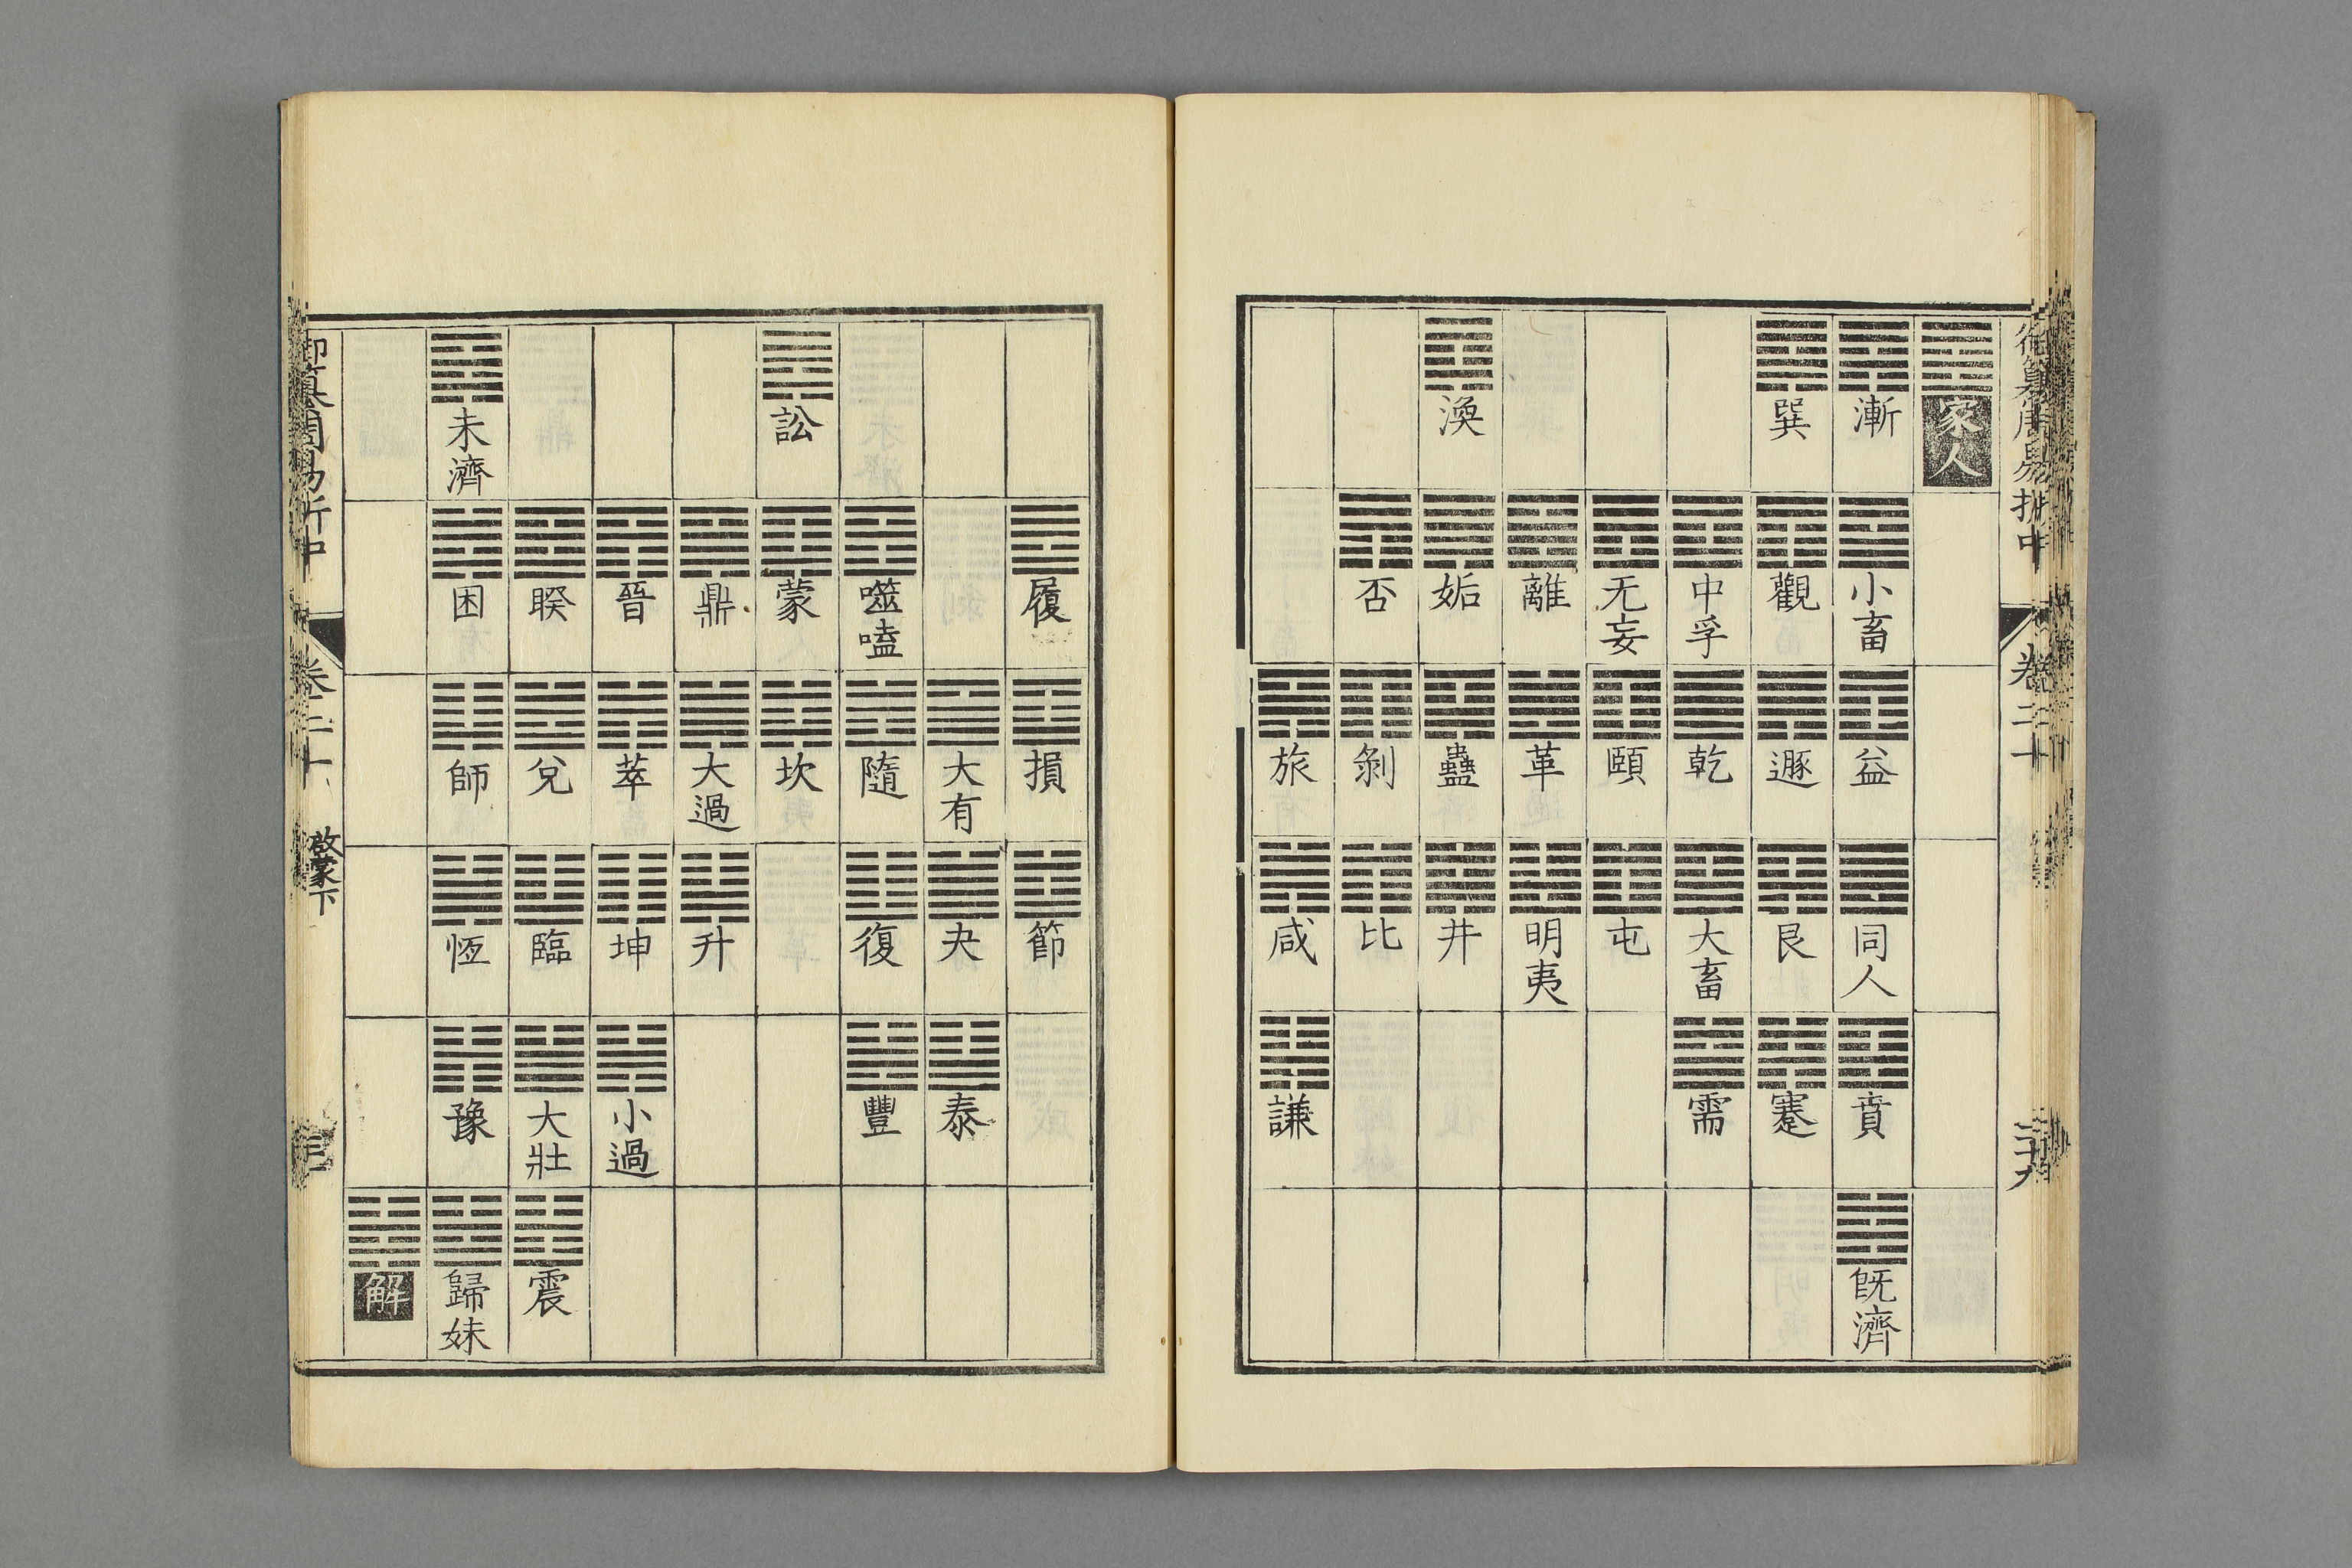 御纂周易折中 卷二十 二十九
家人
漸 小畜 益 同人 賁 既濟
巽 觀 遯 艮 蹇
中孚 乾 大畜 需
无妄 頤 屯
離 革 明夷
渙 姤 蠱 井
否 剝 比
旅 咸 謙
履 損 節
大有 夬 泰
噬嗑 隨 復 豐
訟 蒙 坎
鼎 大過 升
晉 萃 坤 小過
睽 兌 臨 大壯 震
未濟 困 師 恆 豫 歸妹
解
御纂周易折中 卷二十 啟蒙下